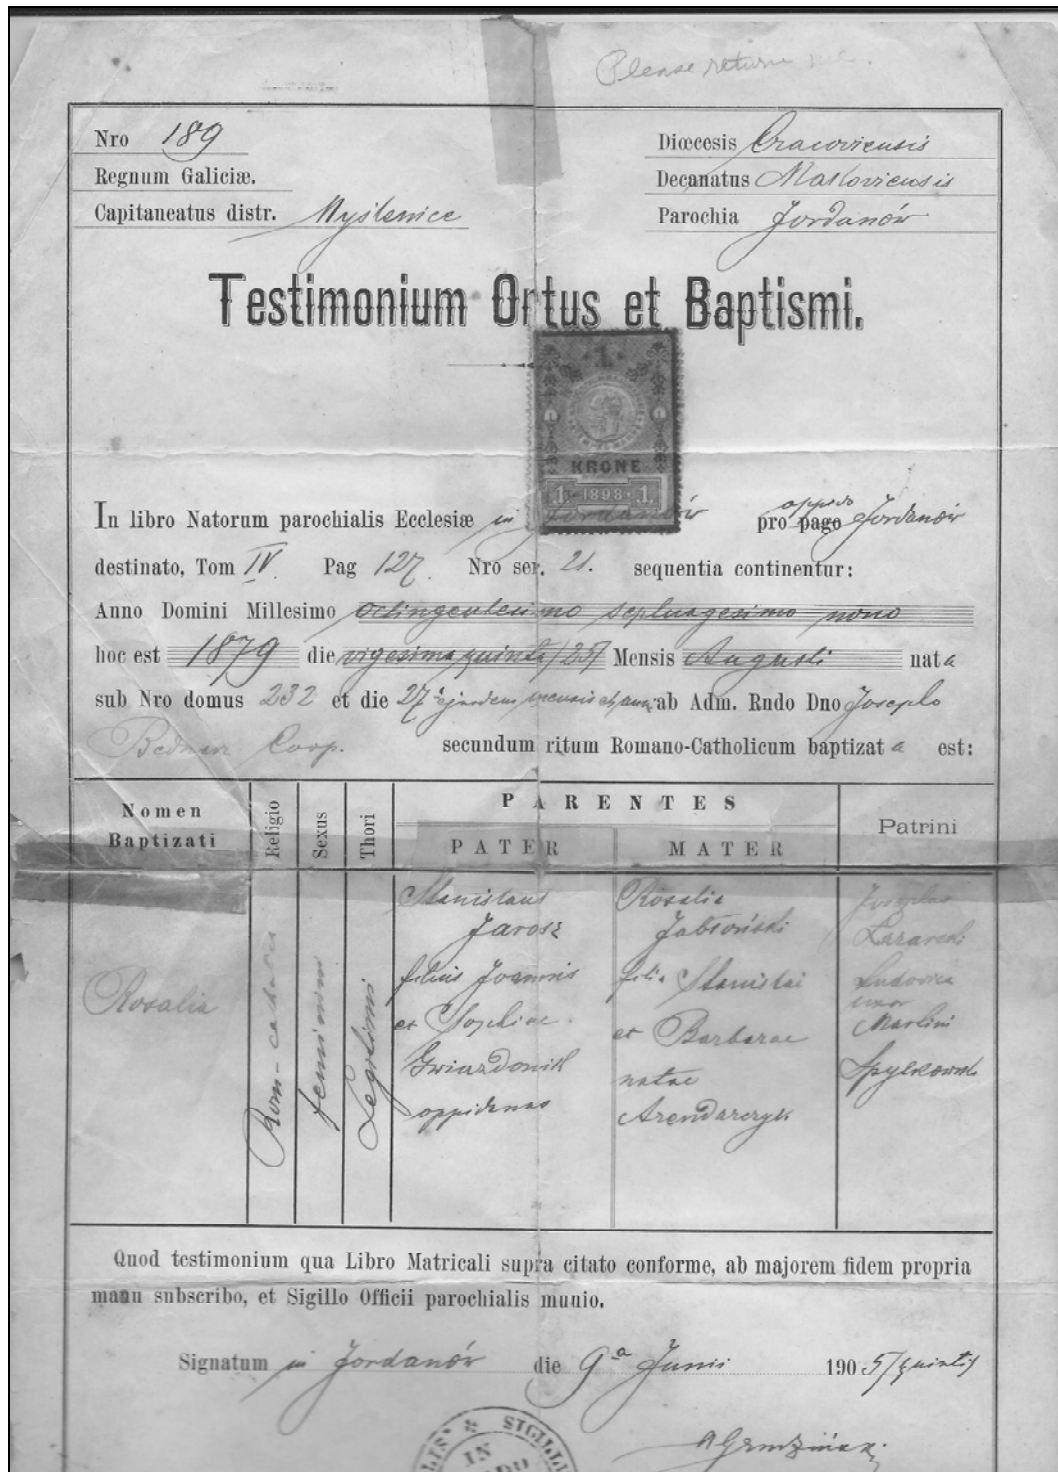 Please return
Nro 189
Regnum Galiciæ.
Capitaneatus distr. Myślenice
Diœcesis Cracoviensis
Decanatus Makoviensis
Parochia Jordanów
Testimonium Ortus et Baptismi.
1
1 1
KRONE
1 1898 1
In libro Natorum parochialis Ecclesiæ in Jordanów pro pago oppido Jordanów
destinato, Tom IV. Pag 127. Nro ser. 21. sequentia continentur:
Anno Domini Millesimo octingentesimo septuagesimo nono
hoc est 1879 die vigesima quinta /25/ Mensis Augusti nata
sub Nro domus 232 et die 27 ejusdem mensis et anni ab Adm. Rndo Dno Josepho
Bednarz Coop. secundum ritum Romano-Catholicum baptizata est:
Nomen
Baptizati
Religio
Sexus
Thori
PARENTES
PATER
MATER
Patrini
Rosalia
Rom-catholica
feminini
Legitimi
Stanislaus
Jarosz
filius Joannis
et Sophiae
oppidanus
Rosalia
Jabłoński
filia Stanislai
et Barbarae
natae
Arendarczyk
Josephus
Lazarski
Ludovica
uxor
Martini
Spytkowski
Quod testimonium qua Libro Matricali supra citato conforme, ab majorem fidem propria
manu subscribo, et Sigillo Officii parochialis munio.
Signatum in Jordanów die 9ª Junii 1905 /quinti/
SIGILL
IN